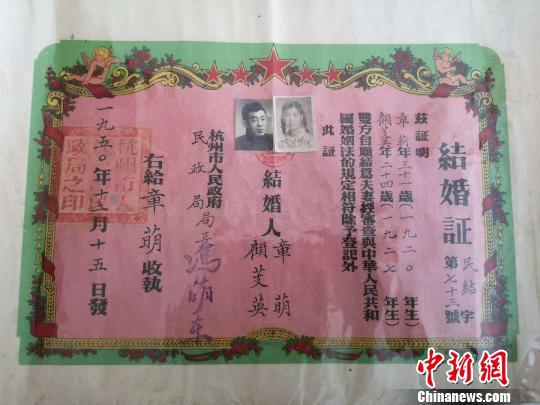 結婚証
民結字
第七十三號
茲証明
章萌年三十一歲(一九二〇年生)
顧芰英年二十四歲(一九二七年生)
雙方自願結爲夫妻經審查與中華人民共和
國婚姻法的規定相符除予登記外
此証
結婚人
章萌
顧芰英
杭州市人民政府
民政局局長
右給章萌收執
一九五〇年十二月十五日發
杭州市人
政局之印
中新网
www.chinanews.com